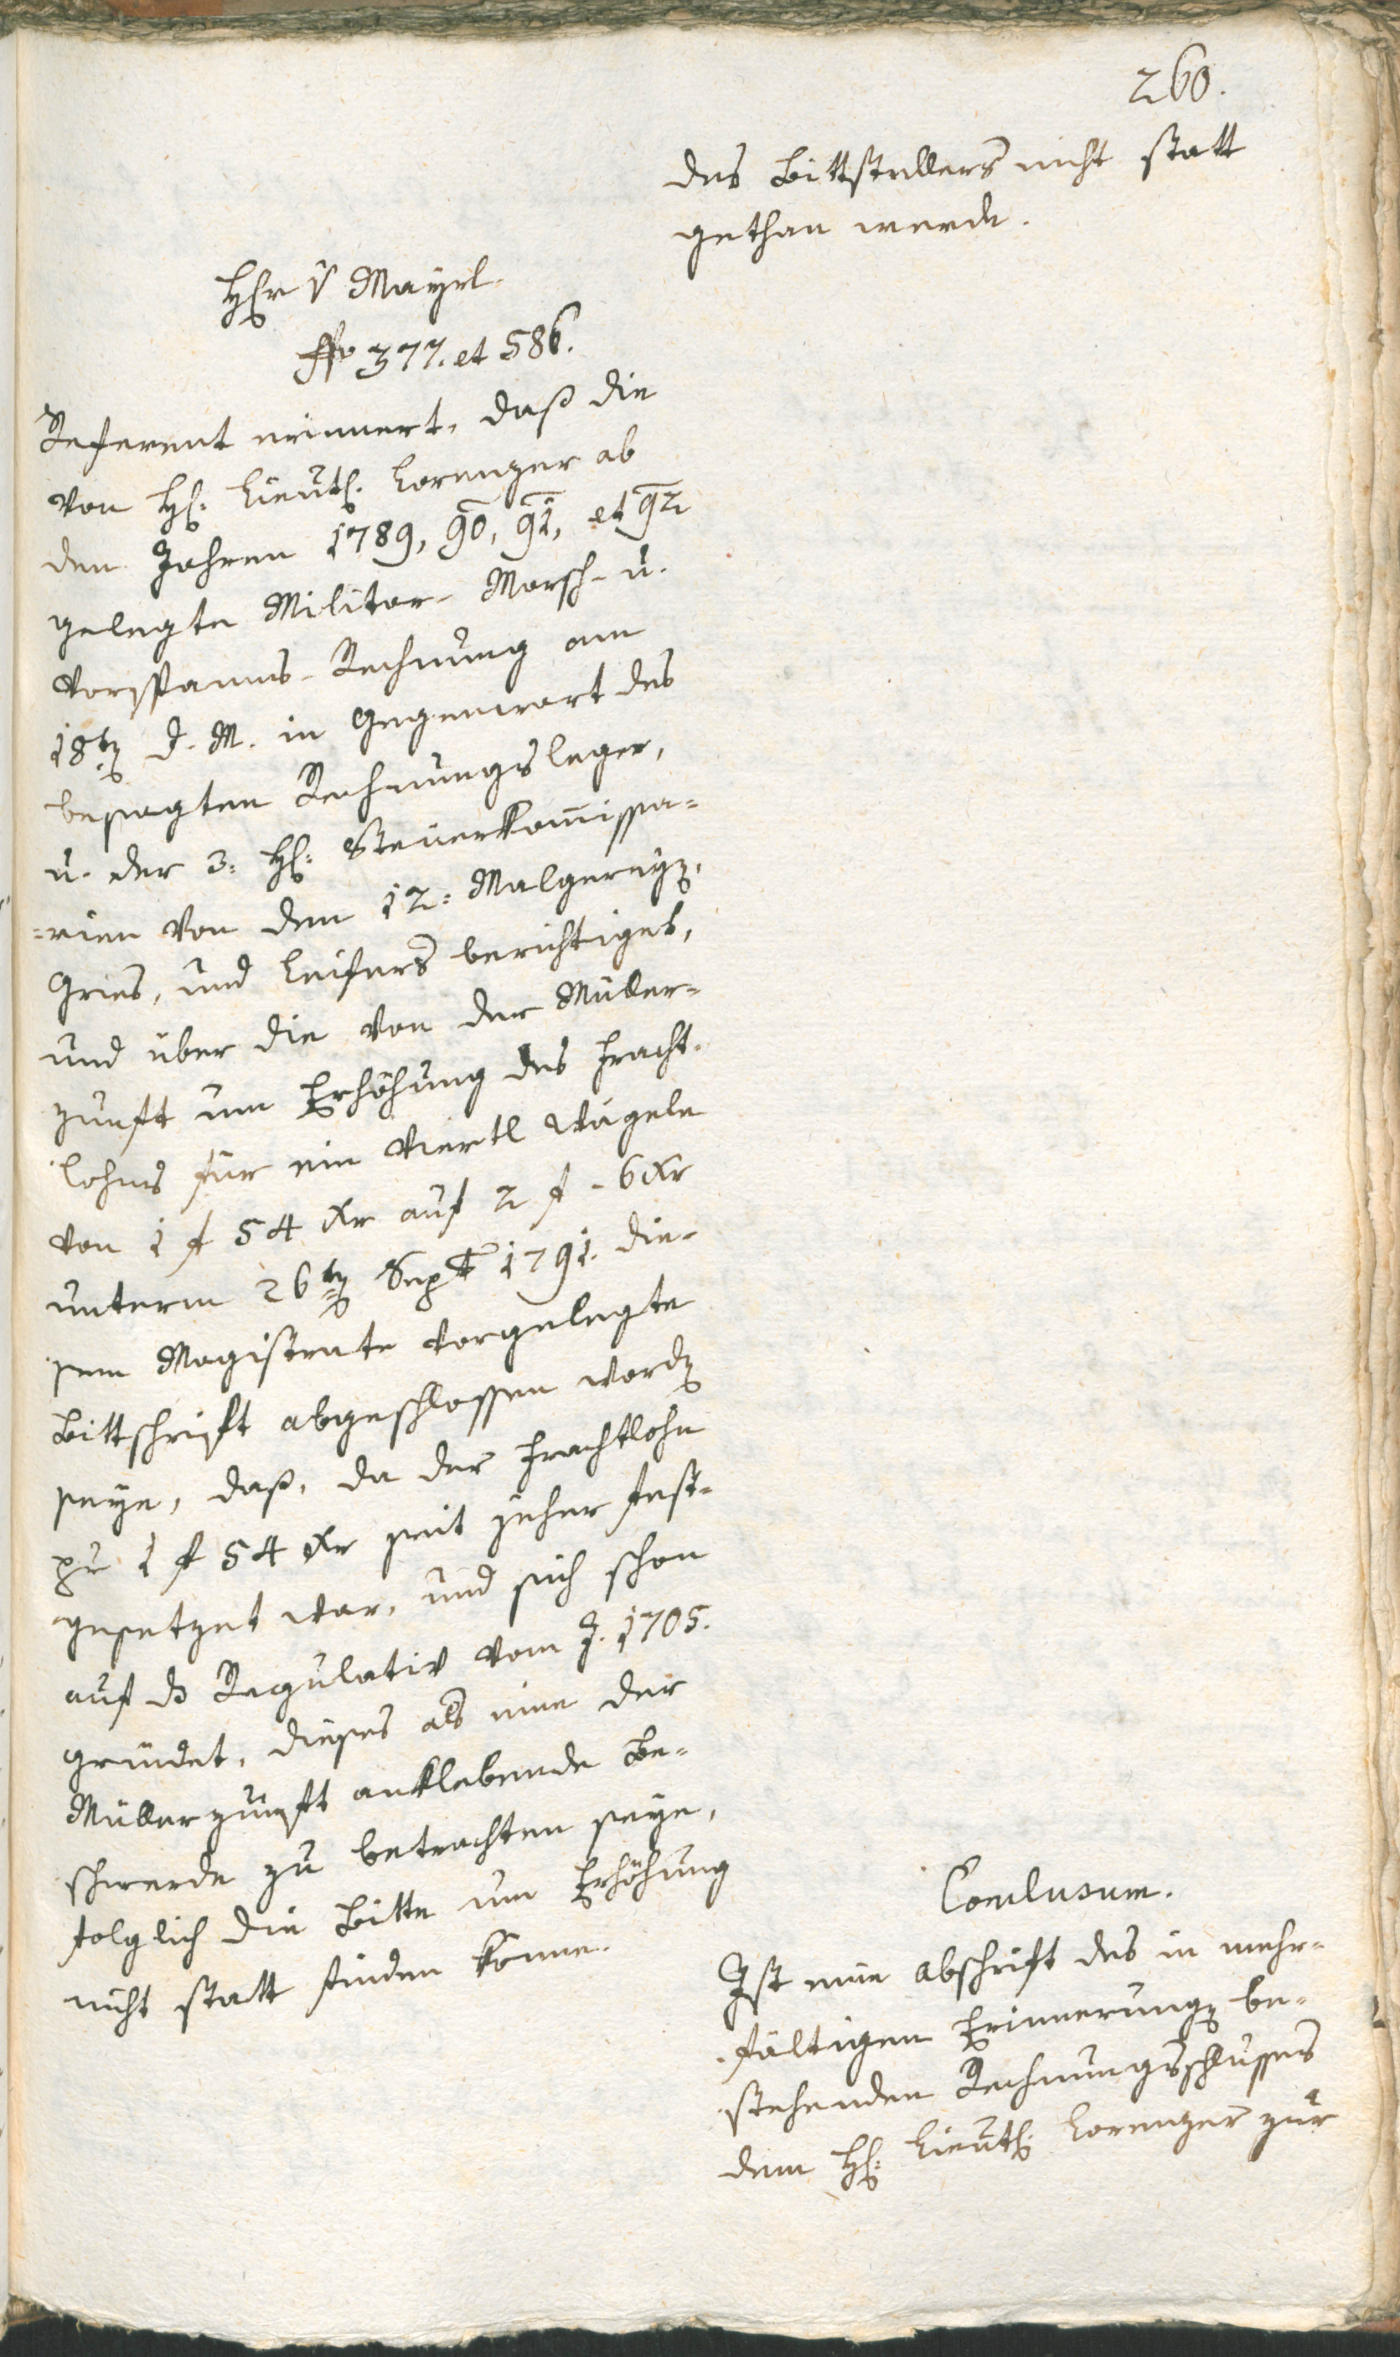 260.
des Bittstellers nicht statt
gethan werde.
Herr v Mayrl.
ffo 377. et 586.
Referent erinnert, daß die
von H: Lieut: Lorenzer ab
den Jahren 1789, 90, 91, et 92
gelegte Militar- Marsch- u.
Vorspanns-Rechnung am
18ten d. M. in Gegenwart des
besagten Rechnungsleger,
u. der 3: H: Steuerkommissa=
=rien von dem 12: Malgereyen,
Gries, und Leifers berichtiget,
und über die von der Müller=
zunft um Erhöhung des Fracht=
lohns für ein Viertl Wägele
von 1 f 54 xr auf 2 f - 6 xr
unterm 26ten Sept 1791. die=
sem Magistrate vorgelegte
Bittschrift abgeschlossen worden
seye, daß, da der Frachtlohn
zu 1 f 54 xr seit jeher fest=
gesetzet war, und sich schon
auf das Regulativ vom J. 1705.
gründet, dieses als eine der
Müllerzunft anklebende Be=
schwerde zu betrachten seye,
folglich die Bitte um Erhöhung
nicht statt finden könne.
Conclusum.
Ist eine Abschrift des in mehr=
fältigen Erinnerungen be=
stehenden Rechnungsschlusses
dem H: Lieut: Lorenzer zur